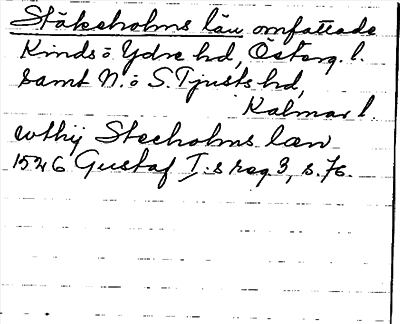 Stäkeholms län omfattade
Kinds o. Ydre hd, Österg. l.
samt N. o. S. Tjusts hd,
Kalmar l.
wthij Stecholms læn
1526 Gustaf I:s reg. 3, s. 76.